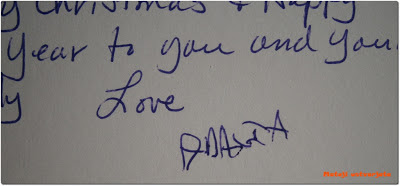 y Christmas & Happy
Year to you and you
y Love